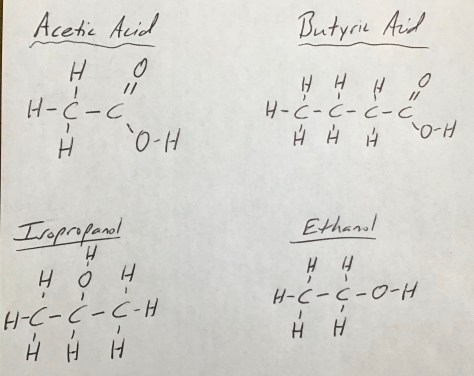 Acetic Acid
H O
H-C-C
H O-H
Butyric Acid
H H H O
H-C-C-C-C
H H H O-H
Isopropanol
H
H O H
H-C-C-C-H
H H H
Ethanol
H H
H-C-C-O-H
H H